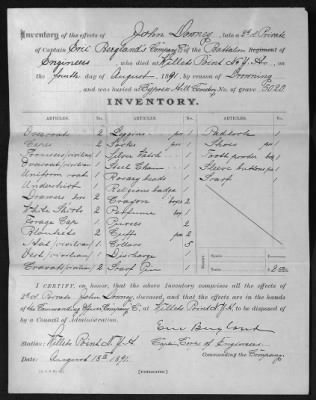 Inventory of the effects of John Downey, late a 2d Private
of Captain Eric Bergland's Company C of the Battalion Regiment of
Engineers, who died at Willets Point N.Y.H., on
the fourth day of August, 1891, by reason of Drowning
and was buried at Cypress Hill Cemetery No. of grave 5020
INVENTORY.
ARTICLES. No. ARTICLES. No. ARTICLES. No.
Overcoats 2 Leggins pr 1 Padlock 1
Capes 2 Socks pr 1 Shoes pr 1
Trousers 1 Silver Watch 1 Tooth powder box 1
2 Chain 1 Sleeve buttons pr 1
Uniform coat 1 Rosary beads 1 Scarf 1
Undershirt 1 Religious badge 1
Drawers 2 Crayon boxes 2
White Shirts 2 Perfume 1
Forage Cap 1 Purses 2
Blankets 2 Cuffs pr 2
Hat (civilian) 1 Collars 5
Vest (civilian) 1 Discharge 1
Cravats 2 Scarf Pin 1
I CERTIFY, on honor, that the above Inventory comprises all the effects
of 2d Private John Downey, deceased, and that the effects are in the hands
of the Commanding Officer Company C. at Willets Point N.Y.H. to be disposed of
by a Council of Administration.
Eric Bergland
Station: Willets Point N.Y.H. Capt. Corps of Engineers
Commanding the Company.
Date: August 13th 1891.